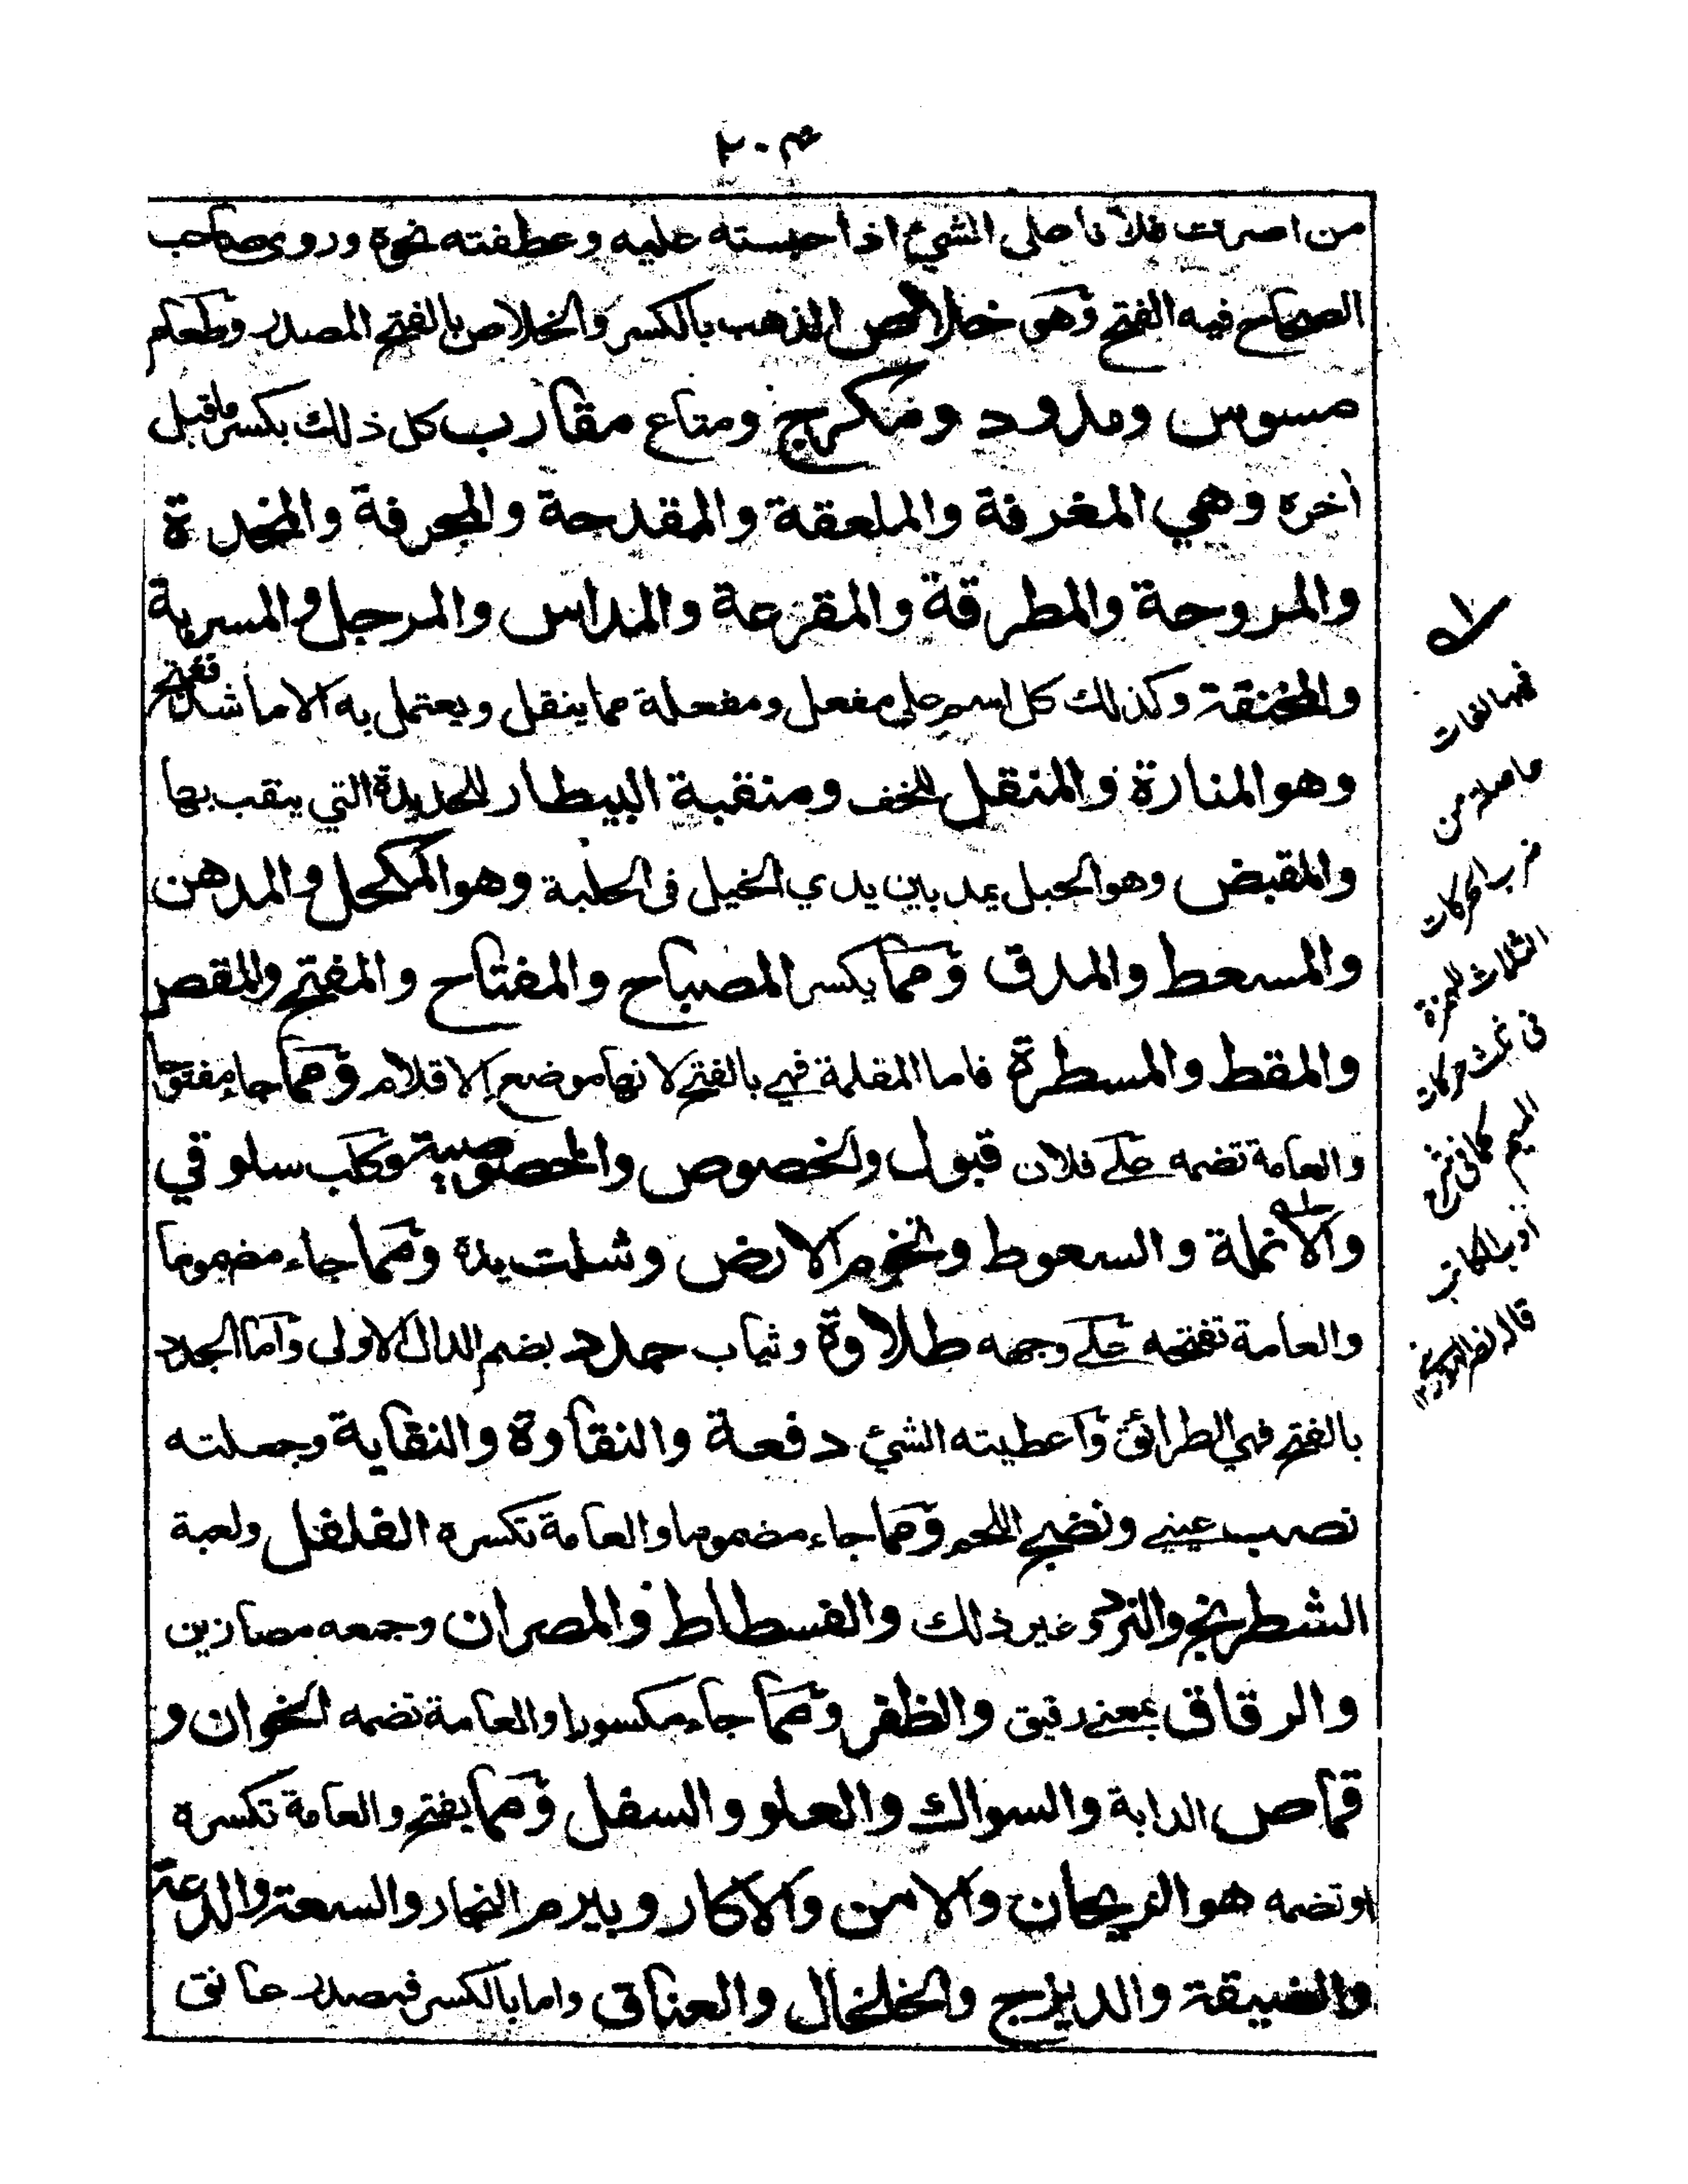 ٢٠٣
من اصرت فلانا على الشيء اذا حبسته عليه وعطفته نحوه وروى صاحب
الصحاح فيه الفتح وهو خلاص الذهب بالكسر والخلاص بالفتح المصدر وطعام
مسوس ومدود ومكرج ومتاع مقارب كل ذلك بكسر ماقبل
اخره وهي المغرفة والملعقة والمقدحة والمجرفة والمخدة
والمروحة والمطرقة والمقرعة والمداس والمرجل والمسربة
والمخنقة وكذلك كل اسم على مفعل ومفعلة مما ينقل ويعتمل به الا ما شذ ففتح
وهو المنارة والمنقل للخف ومنقبة البيطار للحديدة التي ينقب بها
والمقبض وهو الحبل يمد بين يدي الخيل فى الحلبة وهو المكحل والمدهن
والمسعط والمدق ومما يكسر المصباح والمفتاح والمفتح والمقص
والمقط والمسطرة فاما المقلمة فهي بالفتح لانها موضع الاقلام ومما جاء مفتوحا
والعامة تضمه على فلان قبول والخصوص والخصوصية وكلب سلوقي
والانملة والسعوط وتخوم الارض وشلت يده ومما جاء مضموما
والعامة تفتحه على وجهه طلاوة وثياب جدد بضم الدال الاولى واما الجدد
بالفتح فهي الطرائق واعطيته الشيء دفعة والنقاوة والنقاية وجعلته
نصب عيني ونضيج اللحم ومما جاء مضموما والعامة تكسره الفلفل ولعبة
الشطرنج والنرد وغير ذلك والفسطاط والمصران وجمعه مصارين
والرقاق بمعنى رقيق والظفر ومما جاء مكسورا والعامة تضمه الخوان و
قماص الدابة والسواك والعلو والسفل ومما يفتح والعامة تكسره
اوتضمه هو الريحان والامن والاكار وبيرم النجار والسعة والدعة
والضيقة والديزج والخلخال والعناق واما بالكسر فمصدر عانق
فيها لغات
حاصلة من
ضرب الحركات
الثلاث للهمزة
فى ثلث حركات
الميم كما فى شرح